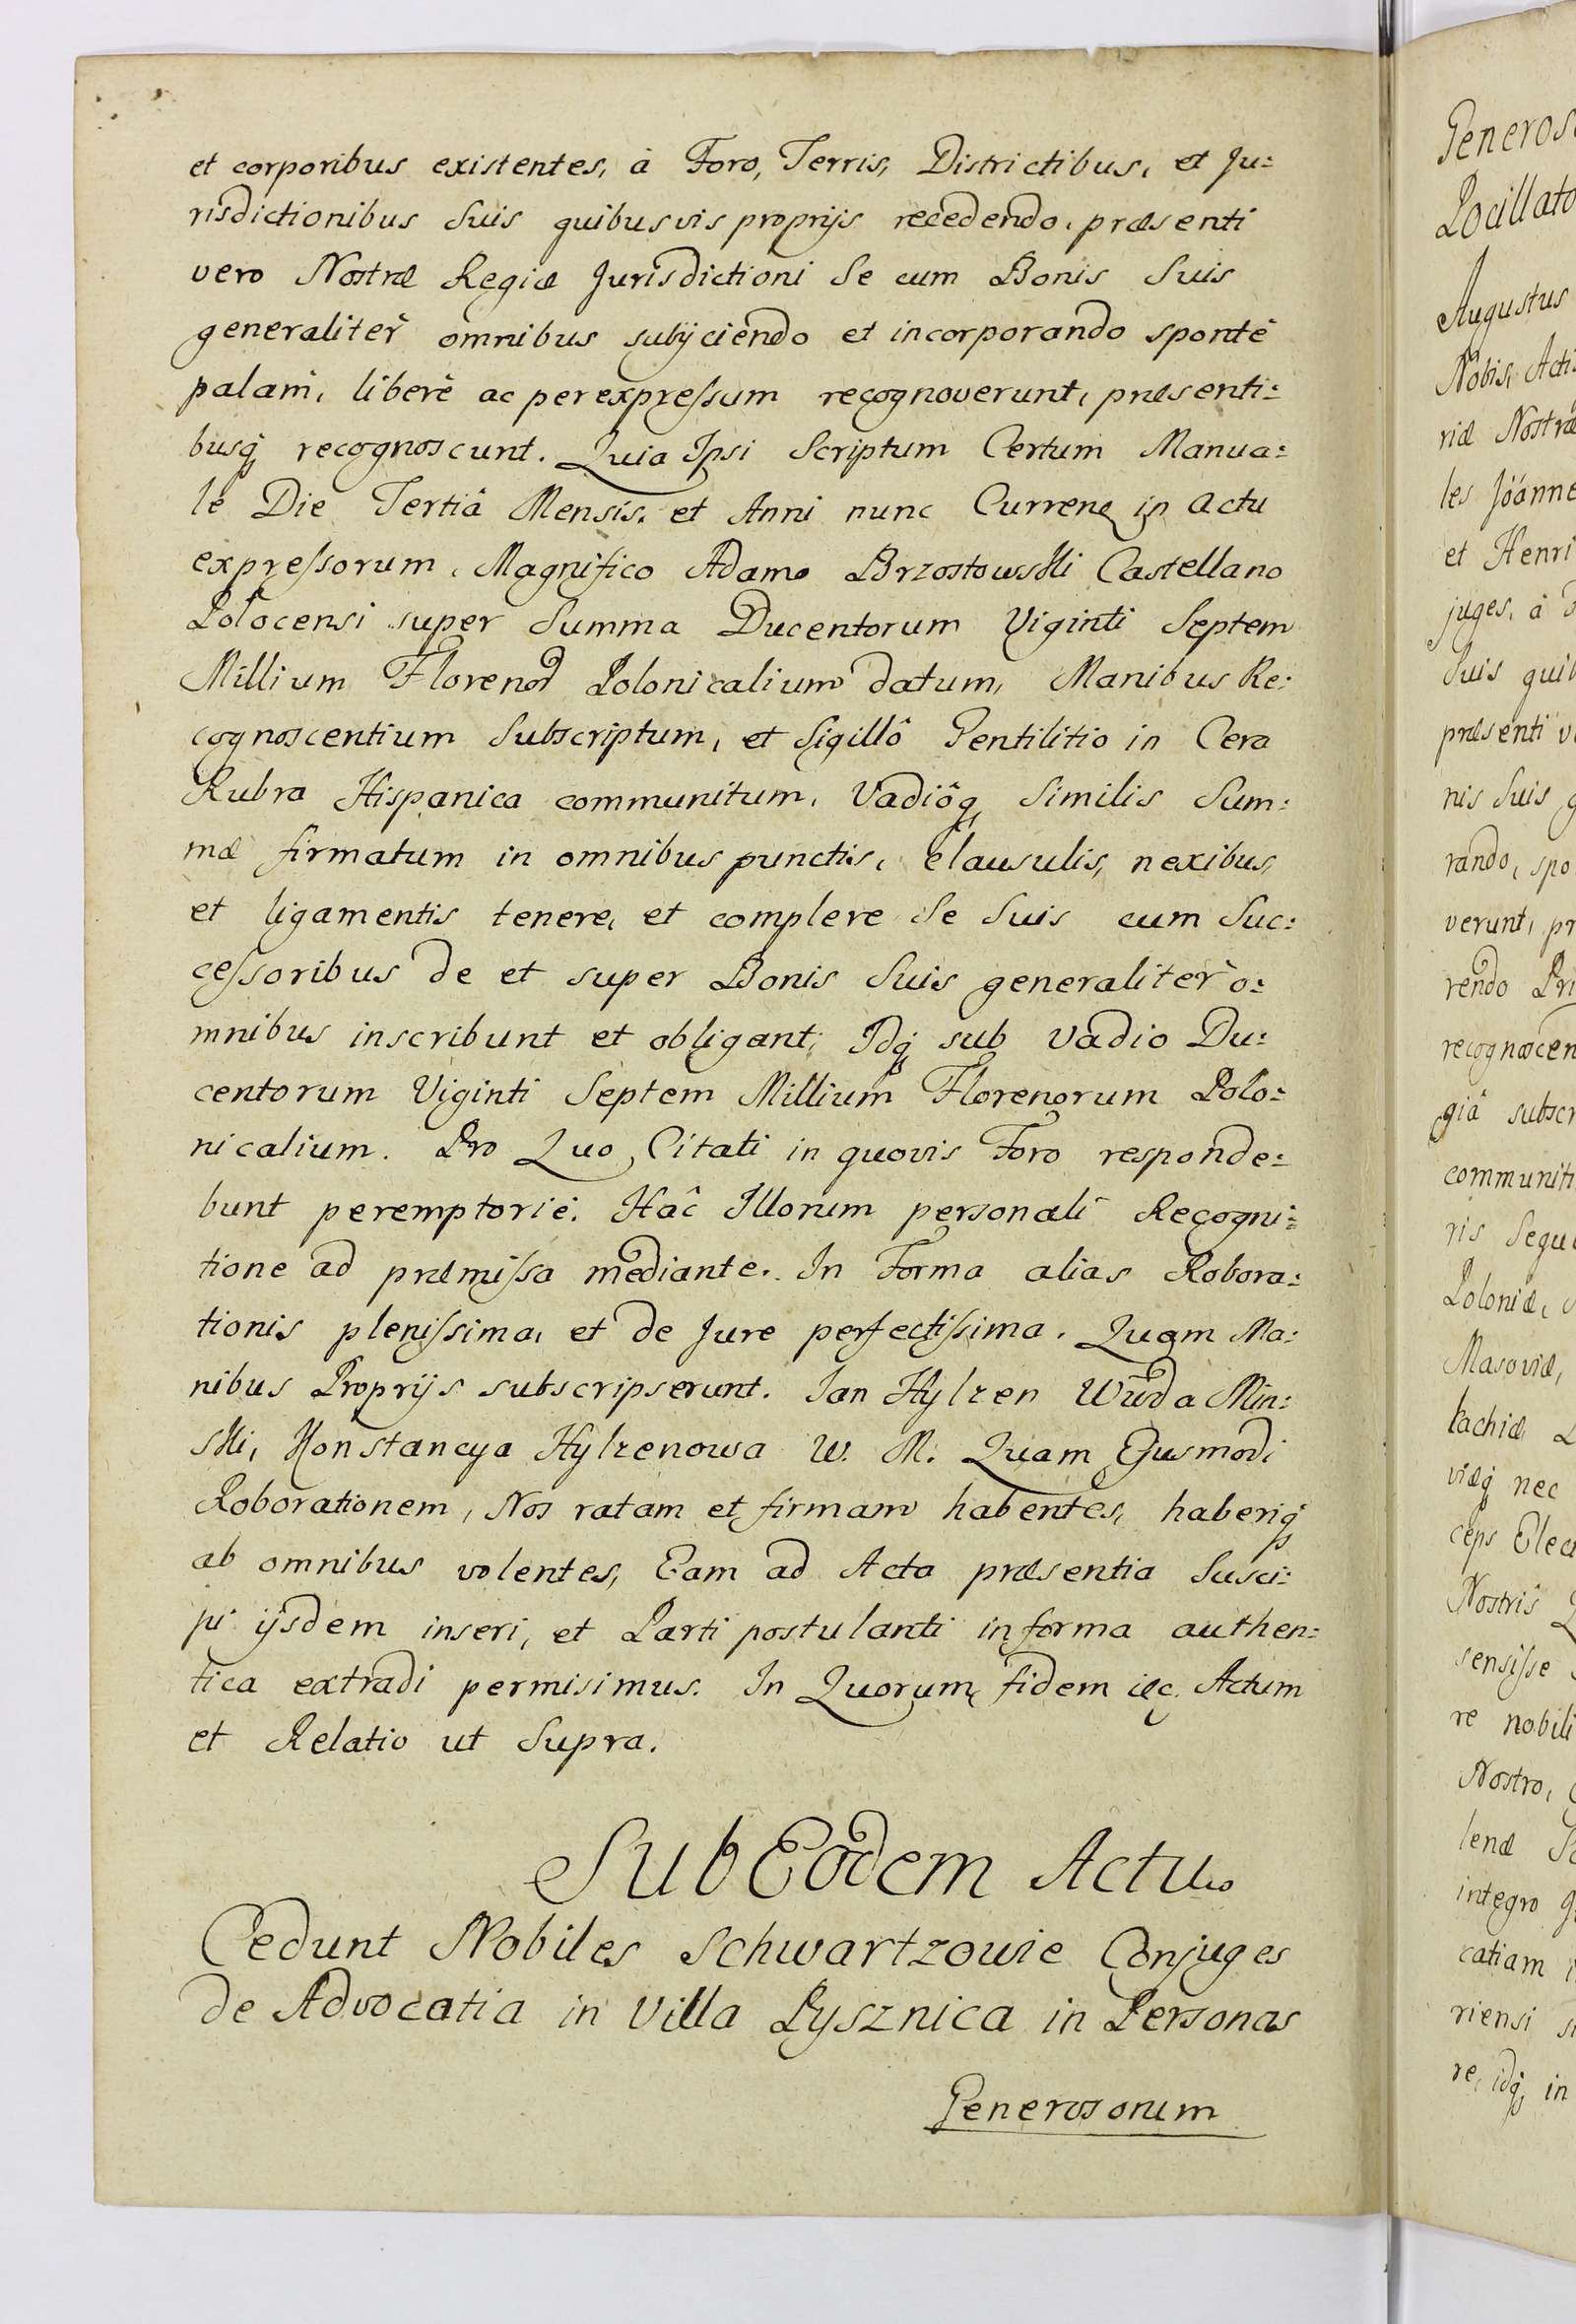 et corporibus existentes, à Foro, Terris, Districtibus, et Ju=
risdictionibus Suis quibusvis proprijs recedendo, præsenti
vero Nostræ Regiæ Jurisdictioni Se cum Bonis Suis
generalitèr omnibus subijciendo et incorporando spontè
palam, liberè ac per expreſsum recognoverunt, præsenti=
busq̨ recognoscunt. Quia Ipsi Scriptum Certum Manua=
le Die Tertiâ Mensis, et Anni nunc Curren in actu
expreſsorum, Magnifico Adamo Brzostowski Castellano
Polocensi super Summa Ducentorum Viginti Septem
Millium Floren Polonicalium datum, Manibus Re=
cognoscentium Subscriptum, et Sigillô Gentilitio in Cera
Rubra Hispanica communitum, Vadiôq̨ Similis Sum=
mæ firmatum in omnibus punctis, clausulis, nexibus,
et ligamentis tenere, et complere Se Suis cum Suc=
ceſsoribus de et super Bonis Suis generalitèr o=
mnibus inscribunt et obligant; Idq̨ sub vadio Du=
centorum Viginti Septem Millium Florenorum Polo=
nicalium. Pro Quo, Citati in quovis Foro responde=
bunt peremptoriè. Hâc Illorum personali Recogni=
tione ad præmiſsa mediante. In Forma alias Robora=
tionis pleniſsima, et de Jure perfectiſsima. Quam Ma=
nibus Proprijs subscripserunt. Jan Hylzen Wwda Min=
ski, Konstancya Hylzenowa W. M. Quam Ejusmodi
Roborationem, Nos ratam et firmam habentes, haberiq̨
ab omnibus volentes, Eam ad Acta præsentia Susci=
pi ijsdem inseri, et Parti postulanti in forma authen=
tica extradi permisimus. In Quorum fidem &c. Actum
et Relatio ut Supra.
Sub Eodem Actu
Cedunt Nobiles Schwartzowie Conjuges
de Advocatia in Villa Pysznica in Personas
Generosorum
Generos
Pocillato
Augustus
Nobis, Acti
riæ Nostræ
les Joanne
et Henri
juges, à
Suis quib
præsenti v
nis Suis g
rando, spo
verunt, pr
rendo Pri
recognoscen
giâ subscr
communit
ris Sequ
Poloniæ,
Masoviæ,
kachiæ
viæq̨ nec
ceps Elec
Nostris
sensiſse
re nobili
Nostro,
lenæ
integro
catiam
riensi
re, idq̨ in